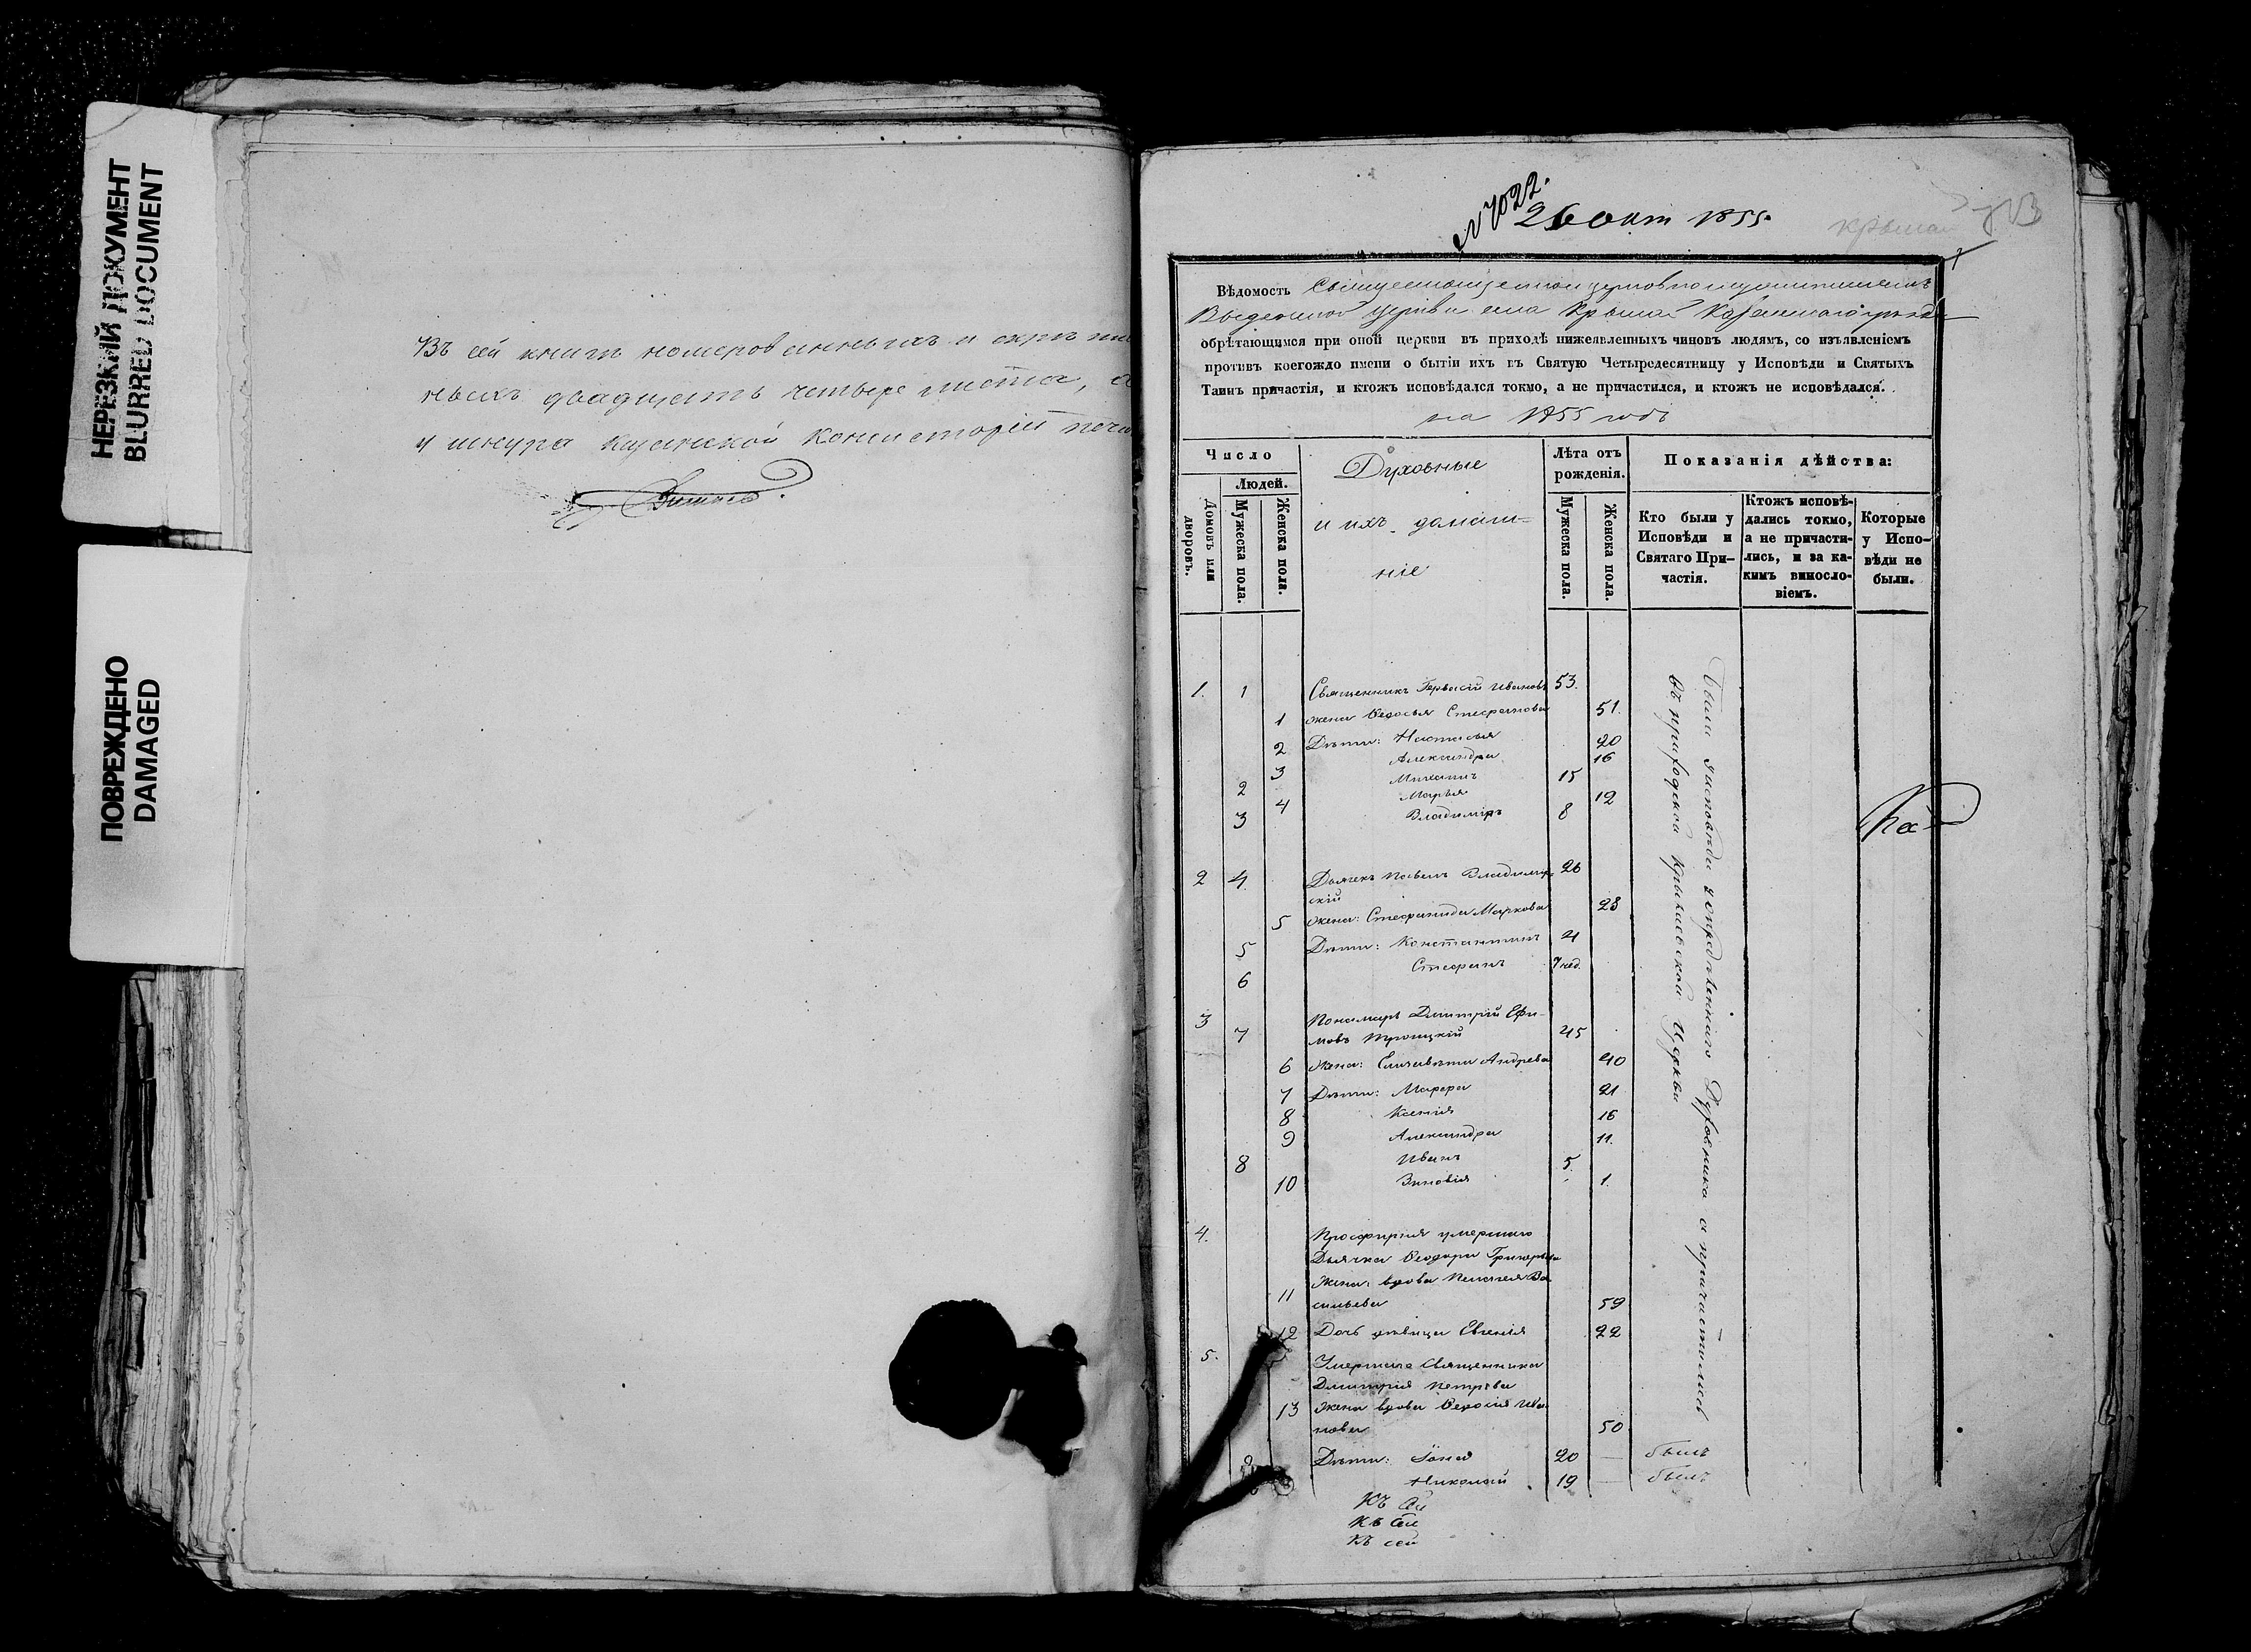 НЕРЕЗКИЙ ДОКУМЕНТ
BLURRED DOCUMENT
ПОВРЕЖДЕНО
DAMAGED
Въ сей книгѣ номерованныхъ и скрѣплен
ныхъ двадцать четыре листа,
у шнура Казанской Консисторіи печа
№ 7022.
26 Окт 1855.
Крылай
Вѣдомость
Введенской Церкви села Крылай Казанскаго уѣзда
обрѣтающимся при оной церкви въ приходѣ нижеявленныхъ чиновъ людямъ, со изъявленіемъ
противъ коегождо имени о бытіи ихъ въ Святую Четыредесятницу у Исповѣди и Святыхъ
Таинъ причастія, и ктожъ исповѣдался токмо, а не причастился, и ктожъ не исповѣдался.
на 1855 годъ
Число
Людей.
Домовъ или дворовъ.
Мужеска пола.
Женска пола.
Духовные
и ихъ домаш=
ніе
Лѣта отъ рожденія.
Мужеска пола.
Женска пола.
Показанія дѣйства:
Кто были у Исповѣди и Святаго При-частія.
Ктожъ исповѣ-дались токмо, а не причасти-лись, и за ка-кимъ винословіемъ.
Которые у Испо-вѣди не были.
1. 1 Священникъ Гервасій Ивановъ 53.
1 Жена Ѳедосья Стефанова 51.
2 Дѣти: Настасья 20
3 Александра 16
2 Михаилъ 15
4 Марья 12
3 Владиміръ 8
2 4 Дьячекъ Павелъ Владимір-
скій 26
5 Жена: Стефанида Маркова 23
5 Дѣти: Константинъ 4
6 Стефанъ 7 нед.
3 7 Пономарь Дмитрій Ефи-
мовъ Троицкій 45
6 Жена: Елизавета Андрева 40
7 Дѣти: Марфа 21
8 Ксенія 16
9 Александра 11.
8 Иванъ 5.
10 Зиновія 1.
4. Просфирня умершаго
Дьячка Ѳеодора Григорьева
Жена: вдова Пелагея Ва
11 сильева 59
12 Дочь дѣвица Евгенія 22
5. Умершаго Священника
Дмитрія Петрова
13 Жена вдова Ѳедосія Ива
нова 50
Дѣти: Іона 20 — былъ
Николай 19 — былъ
Къ
Къ
Къ сей
Были у исповѣди у опредѣленнаго Духовника и причастились
въ приходской Крылайской Церкви